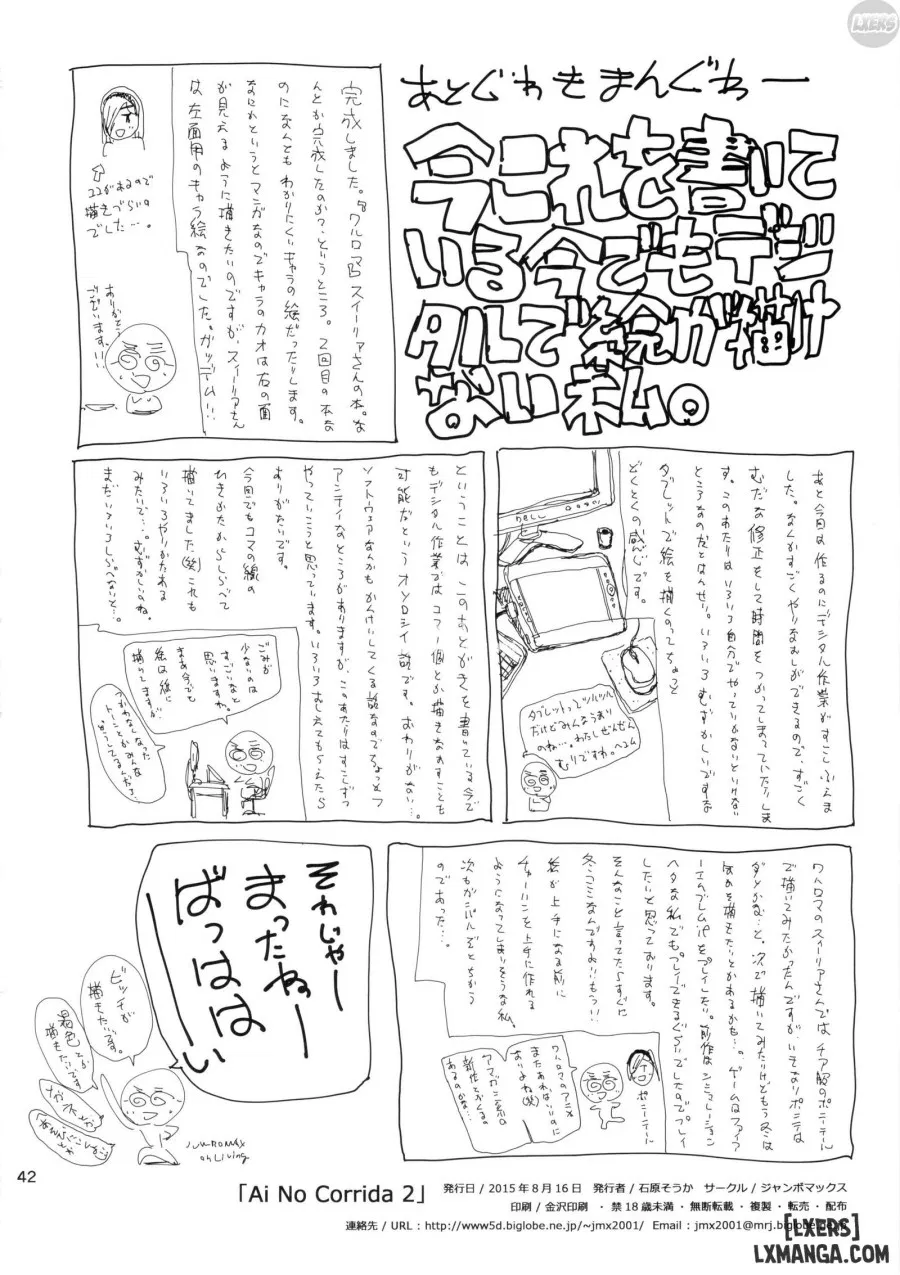 あとぐわもまんぐゎー
今これを書いて
いる今でもデジ
タルで絵が描け
ない私。
完成しました。『ワルロマ』スイーリアさんの本。な
んとか完成したのか?というところ。2回目の本な
のになんともわかりにくいキャラの絵だったりします。
なにかというとマンガなのでキャラのカオは右の面
が見えるように描きたいのですが、スイーリアさん
は左面用のキャラ絵なのでした。ガッデム!!
ココがあるので
描きづらいの
でした…。
ありがとう
ございます!!
あと今回は作るのにデジタル作業がすこしふえま
した。なんかすごくやりなおしができるので、すごく
むだな修正をして時間をつかってしまっていたりしま
す。このあたりはいろいろ自分でやっていかないといけない
ところなのだとはんせい。いろいろむずかしいですな
タブレットで絵を描くのってちょっと
どくとくの感じです。
DELL
タブレットってツルツル
だけどみんなうまい
のね…。わたしぜんぜん
むりですわ。へえん
ということは、このあとがきを書いている今で
もデジタル作業ではコマ一個とか描きなおすことも
可能だというオソロシイ説です。おわりがない…。
ソフトウェアなんかもかんけいしてくる説なのでちょっとフ
アンティなところがありますが、このあたりはすこしずつ
やっていこうと思っています。いろいろおしえてもらえたら
ありがたいです。
今回でもコマの線の
ひきかたからしらべて
描いてました(笑)これも
いろいろやりかたある
みたいで…。むずかしいのね。
まだいろいろしらべないと…。
ごみが
少ないのは
すごいなと
思いますね。
まあ今でも
絵は紙に
描いてますが
つかわなくなった
トーンとかみんな
どうしてるんだろ?
ワルロマのスイーリアさんではチア服のポニーテール
で描いてみたかったんですが、いきなりポニテは
ダメかな…と。次で描いてみたいけどもう冬は
べつのを描きたいとかあるかも…。ゲームはファイア
ーエムブレムifをプレイしたい。前作はシミュレーション
ヘタな私でもプレイできるぐらいでしたのでプレイ
したいと思っております。
そんなこと言ってたらすぐに
冬コミなんですよ!!もう!!
絵が上手になる前に
チャーハンを上手に作れる
ようになってしまいそうな私、
次もガンバルぞとちかう
のであった…。
ポニーテール
ワルロマのアニメ
またあればいいのに
おりよね(笑)
アマガミ二次の
新作とかくるの
あるのかな…
それじゃー
まったねっー
ばっははーい
ビッチが
描きたいです。
褐色とか
描きたいです
JUMBOMAX
oh Living
42
「Ai No Corrida 2」 発行日 / 2015年8月16日 発行者 / 石原そうか サークル / ジャンボマックス
印刷 / 金沢印刷 ・ 禁18歳未満 ・ 無断転載 ・ 複製 ・ 転売 ・ 配布
連絡先 / URL : http://www5d.biglobe.ne.jp/~jmx2001/ Email : jmx2001@mrj.biglobe.ne.jp
LXERS
[LXERS]
LXMANGA.COM